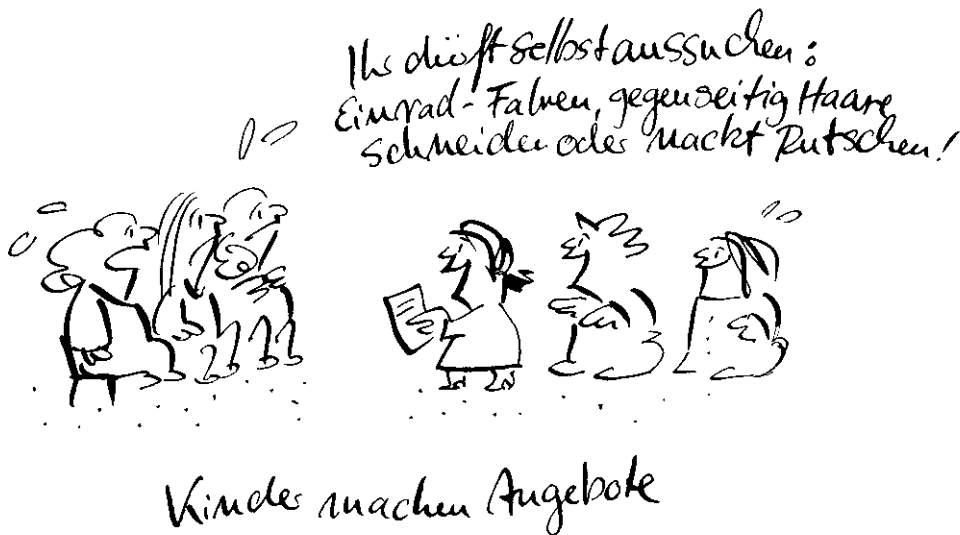 Ihr dürft selbst aussuchen:
Einrad-Fahren, gegenseitig Haare
schneiden oder nackt Rutschen!
Kinder machen Angebote